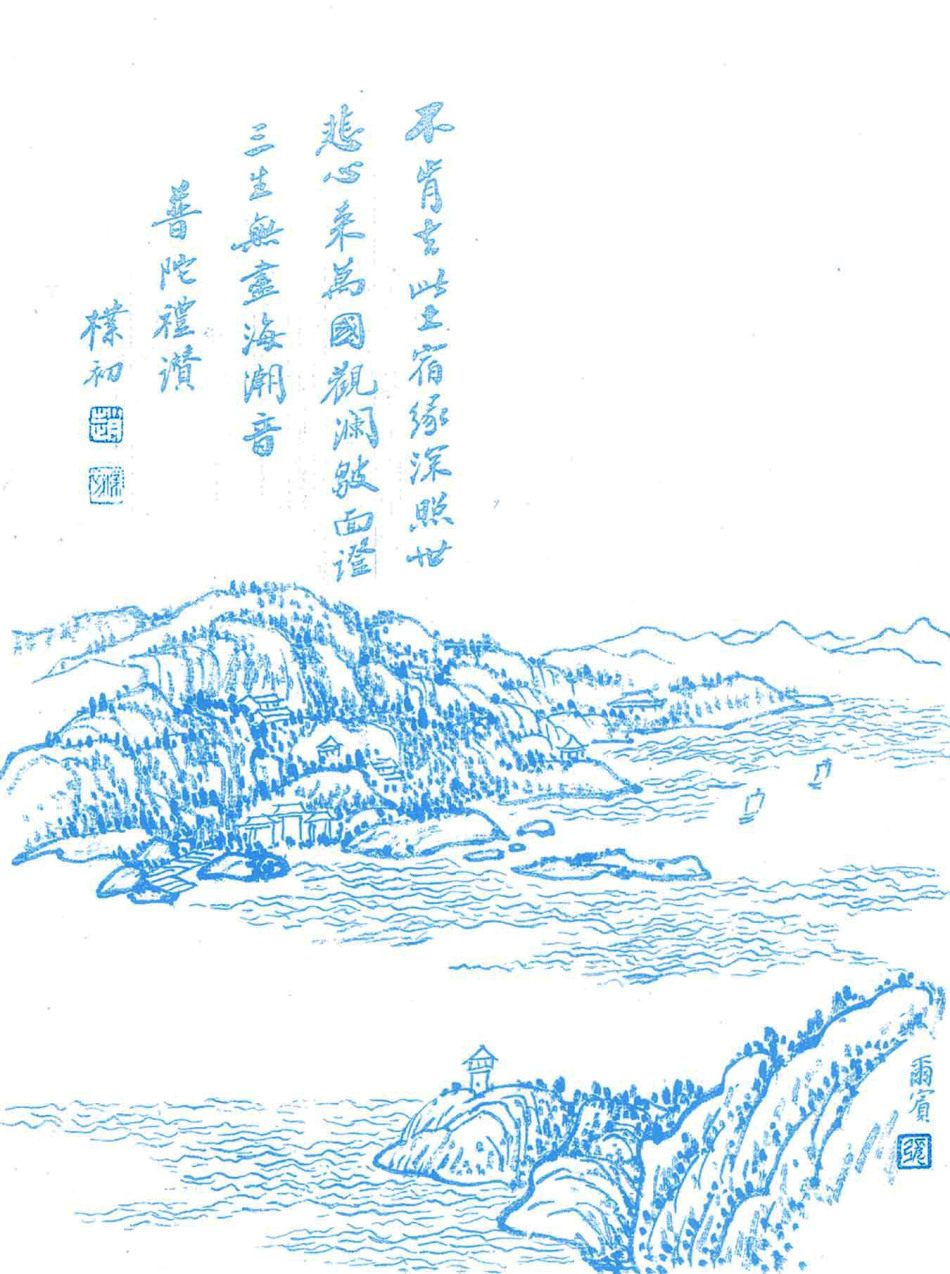 不肯去此土宿緣深照世
悲心来萬國觀瀾皺面證
三生無盡海潮音
普陀禮讚
樸初
趙
爾賓